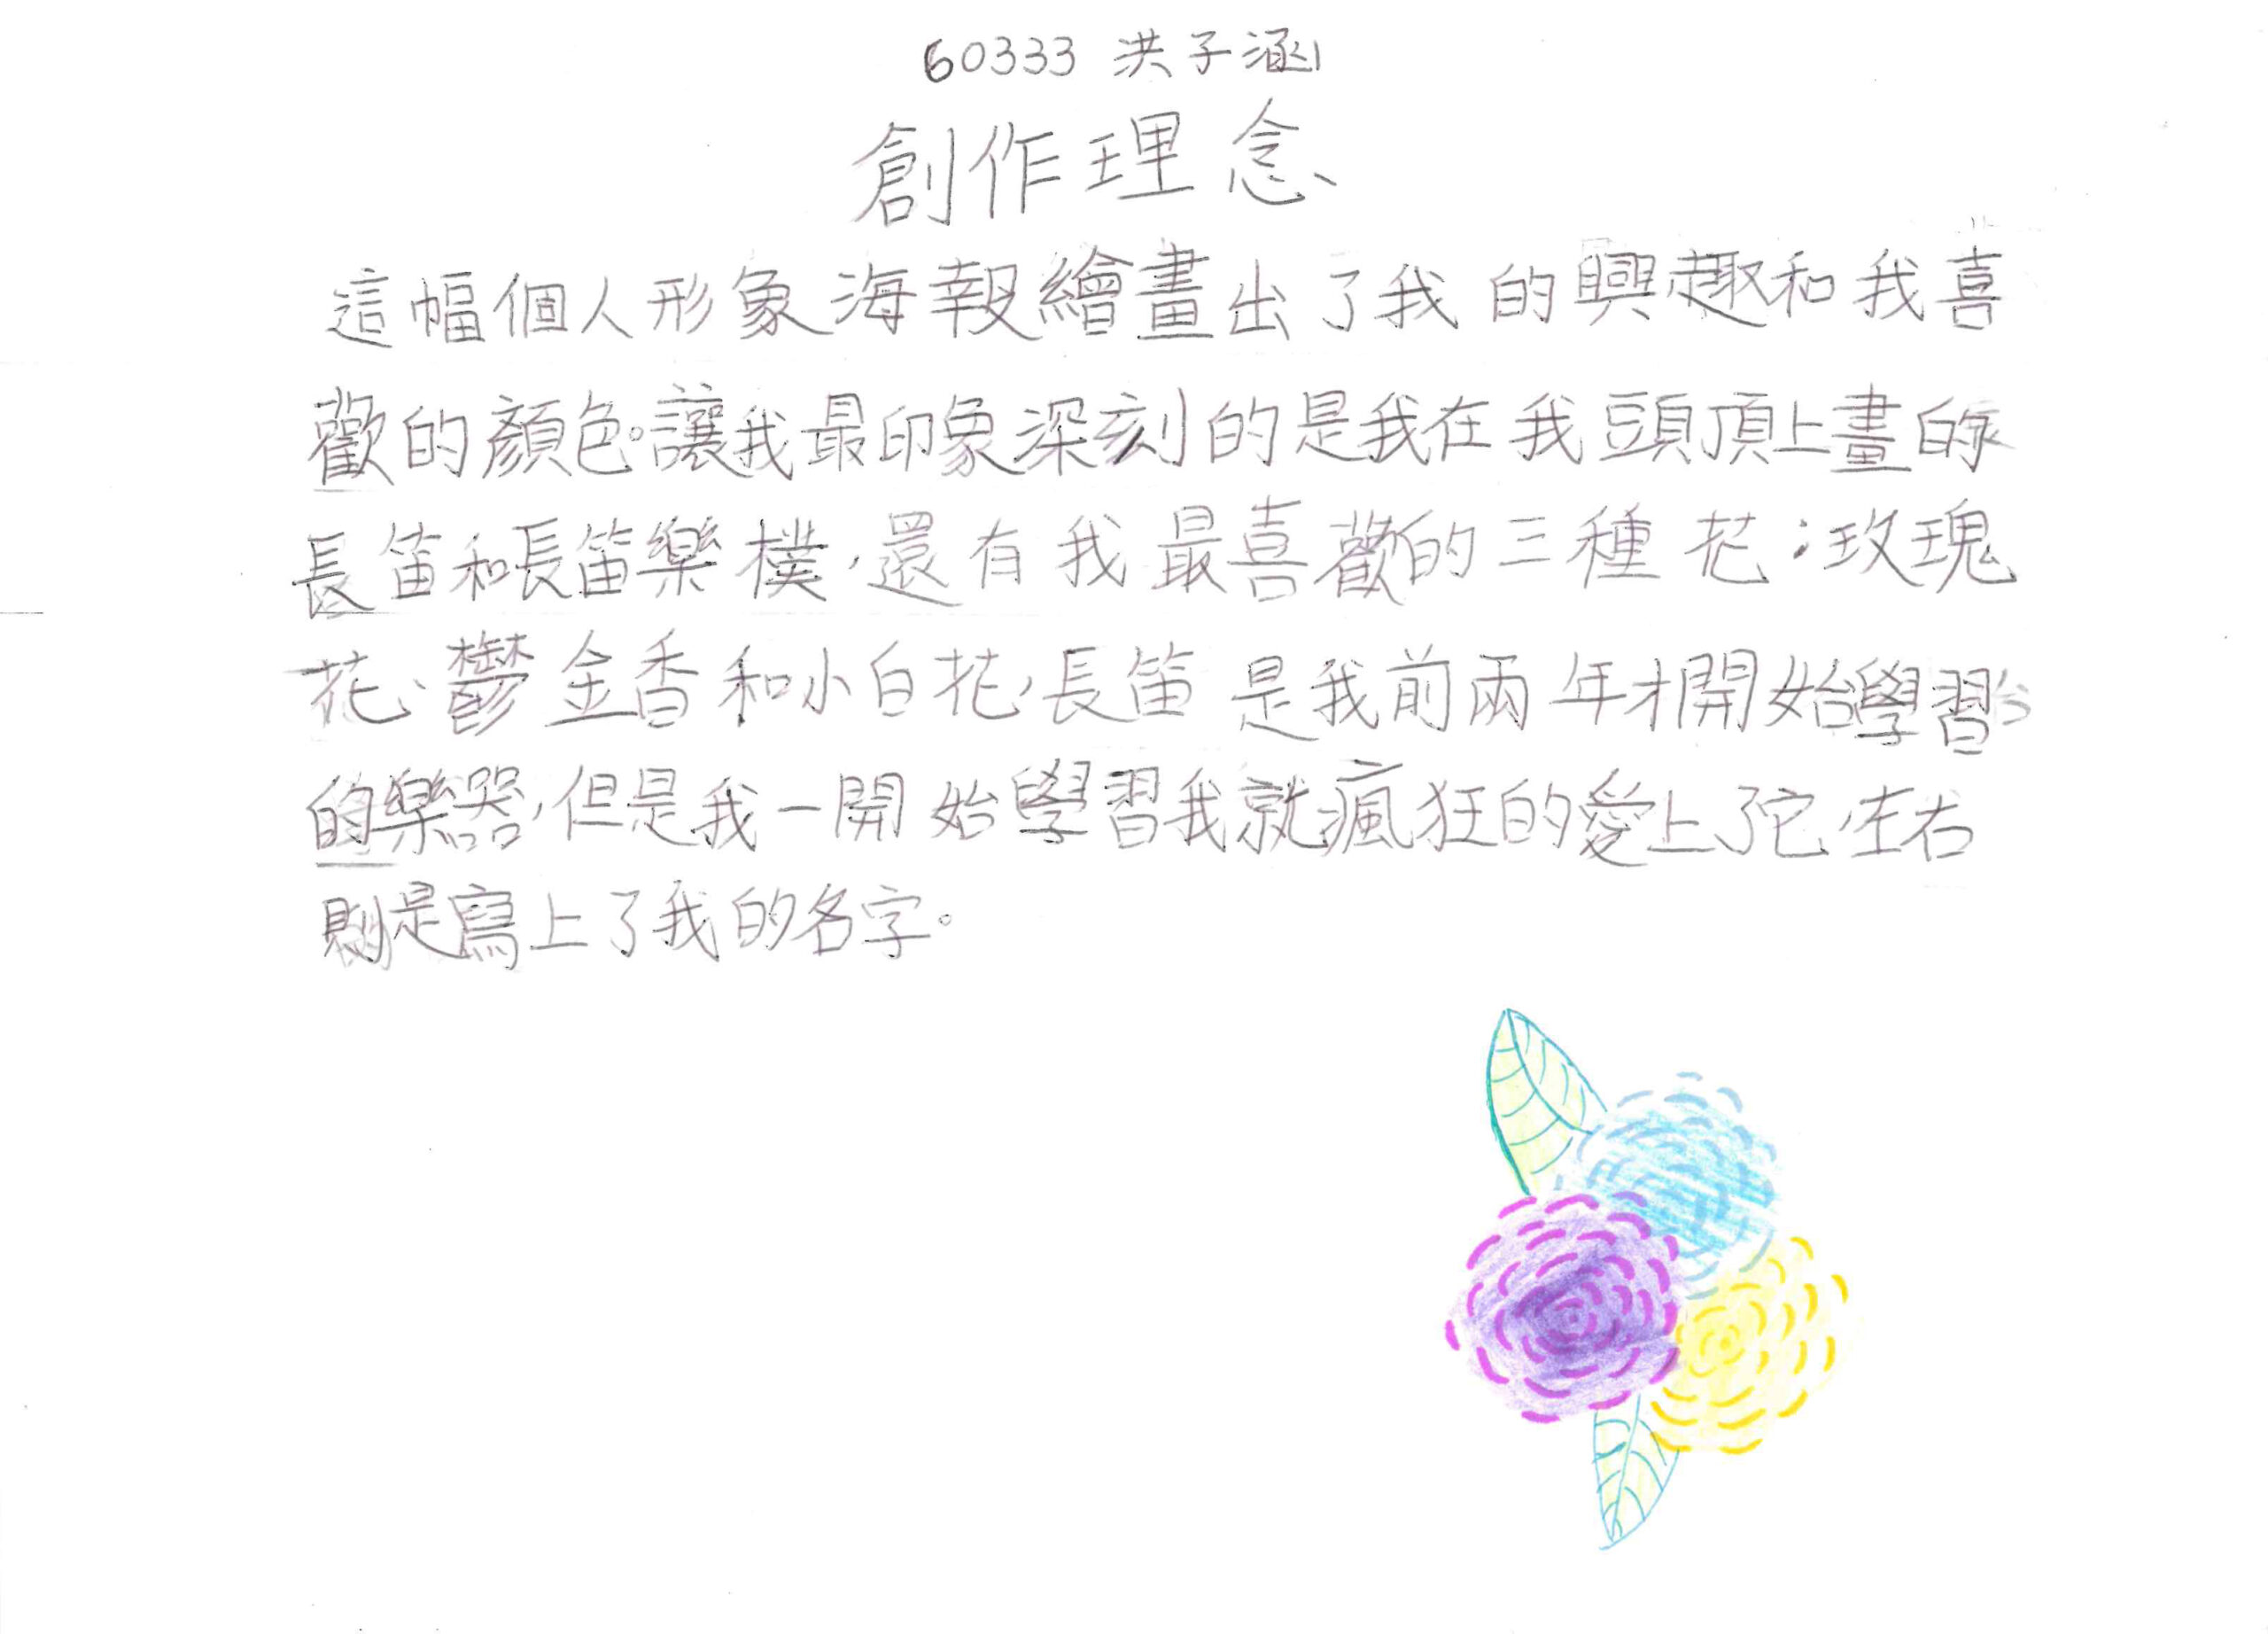 60333 洪子涵
創作理念
這幅個人形象海報繪畫出了我的興趣和我喜
歡的顏色。讓我最印象深刻的是我在我頭頂上畫的
長笛和長笛樂樸,還有我最喜歡的三種花:玫瑰
花、鬱金香和小白花,長笛是我前兩年才開始學習
的樂器,但是我一開始學習我就瘋狂的愛上了它,左右
則是寫上了我的名字。